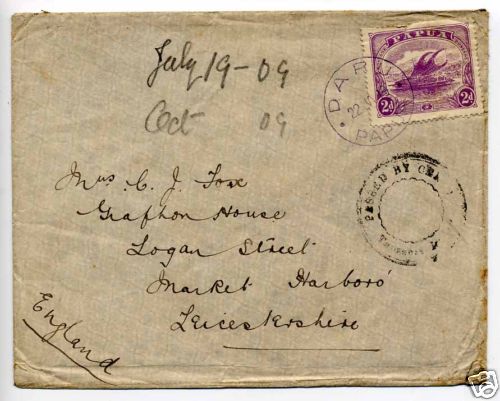 July 19-09
Oct 09
PAPUA
2d 2d
DARU
22
PAP
PASSED BY CE
Mrs C. J. Fox
Grafton House
Logan Street
Market Harboro'
Leicestershire
England